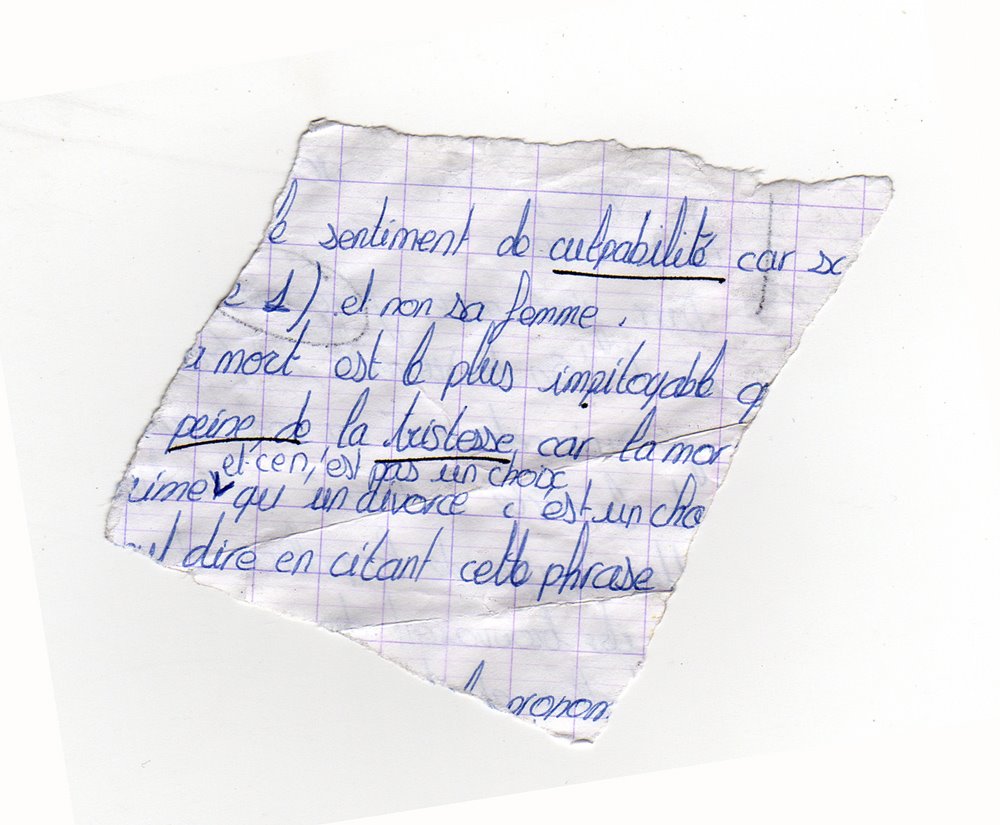 le sentiment de culpabilité car so
e 1) et non sa femme.
a mort est le plus impitoyable q
peine de la tristesse car la mor
et ce n'est pas un choix
rime qu'un divorce c'est un cho
dire en citant cette phrase
pronom